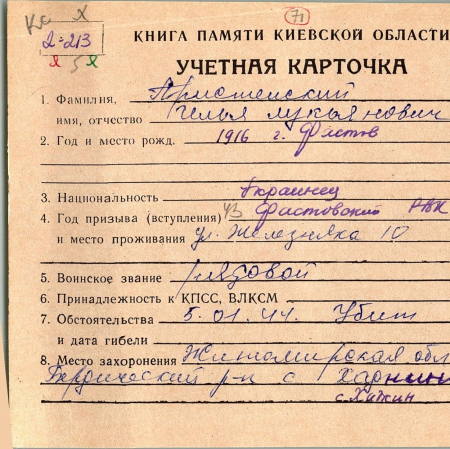 Кс х
71
2-213
х 5 х
КНИГА ПАМЯТИ КИЕВСКОЙ ОБЛАСТИ
УЧЕТНАЯ КАРТОЧКА
1. Фамилия,
имя, отчество Илья Лукьянович
2. Год и место рожд. 1916 г. Фастов
3. Национальность Украинец
4. Год призыва (вступления) Фастовский РВК
и место проживания ул. Железняка 10
5. Воинское звание рядовой
6. Принадлежность к КПСС, ВЛКСМ
7. Обстоятельства 5.01.44. Убит
и дата гибели
8. Место захоронения Житомирская обл
Бердический р-н с
с. Хажин